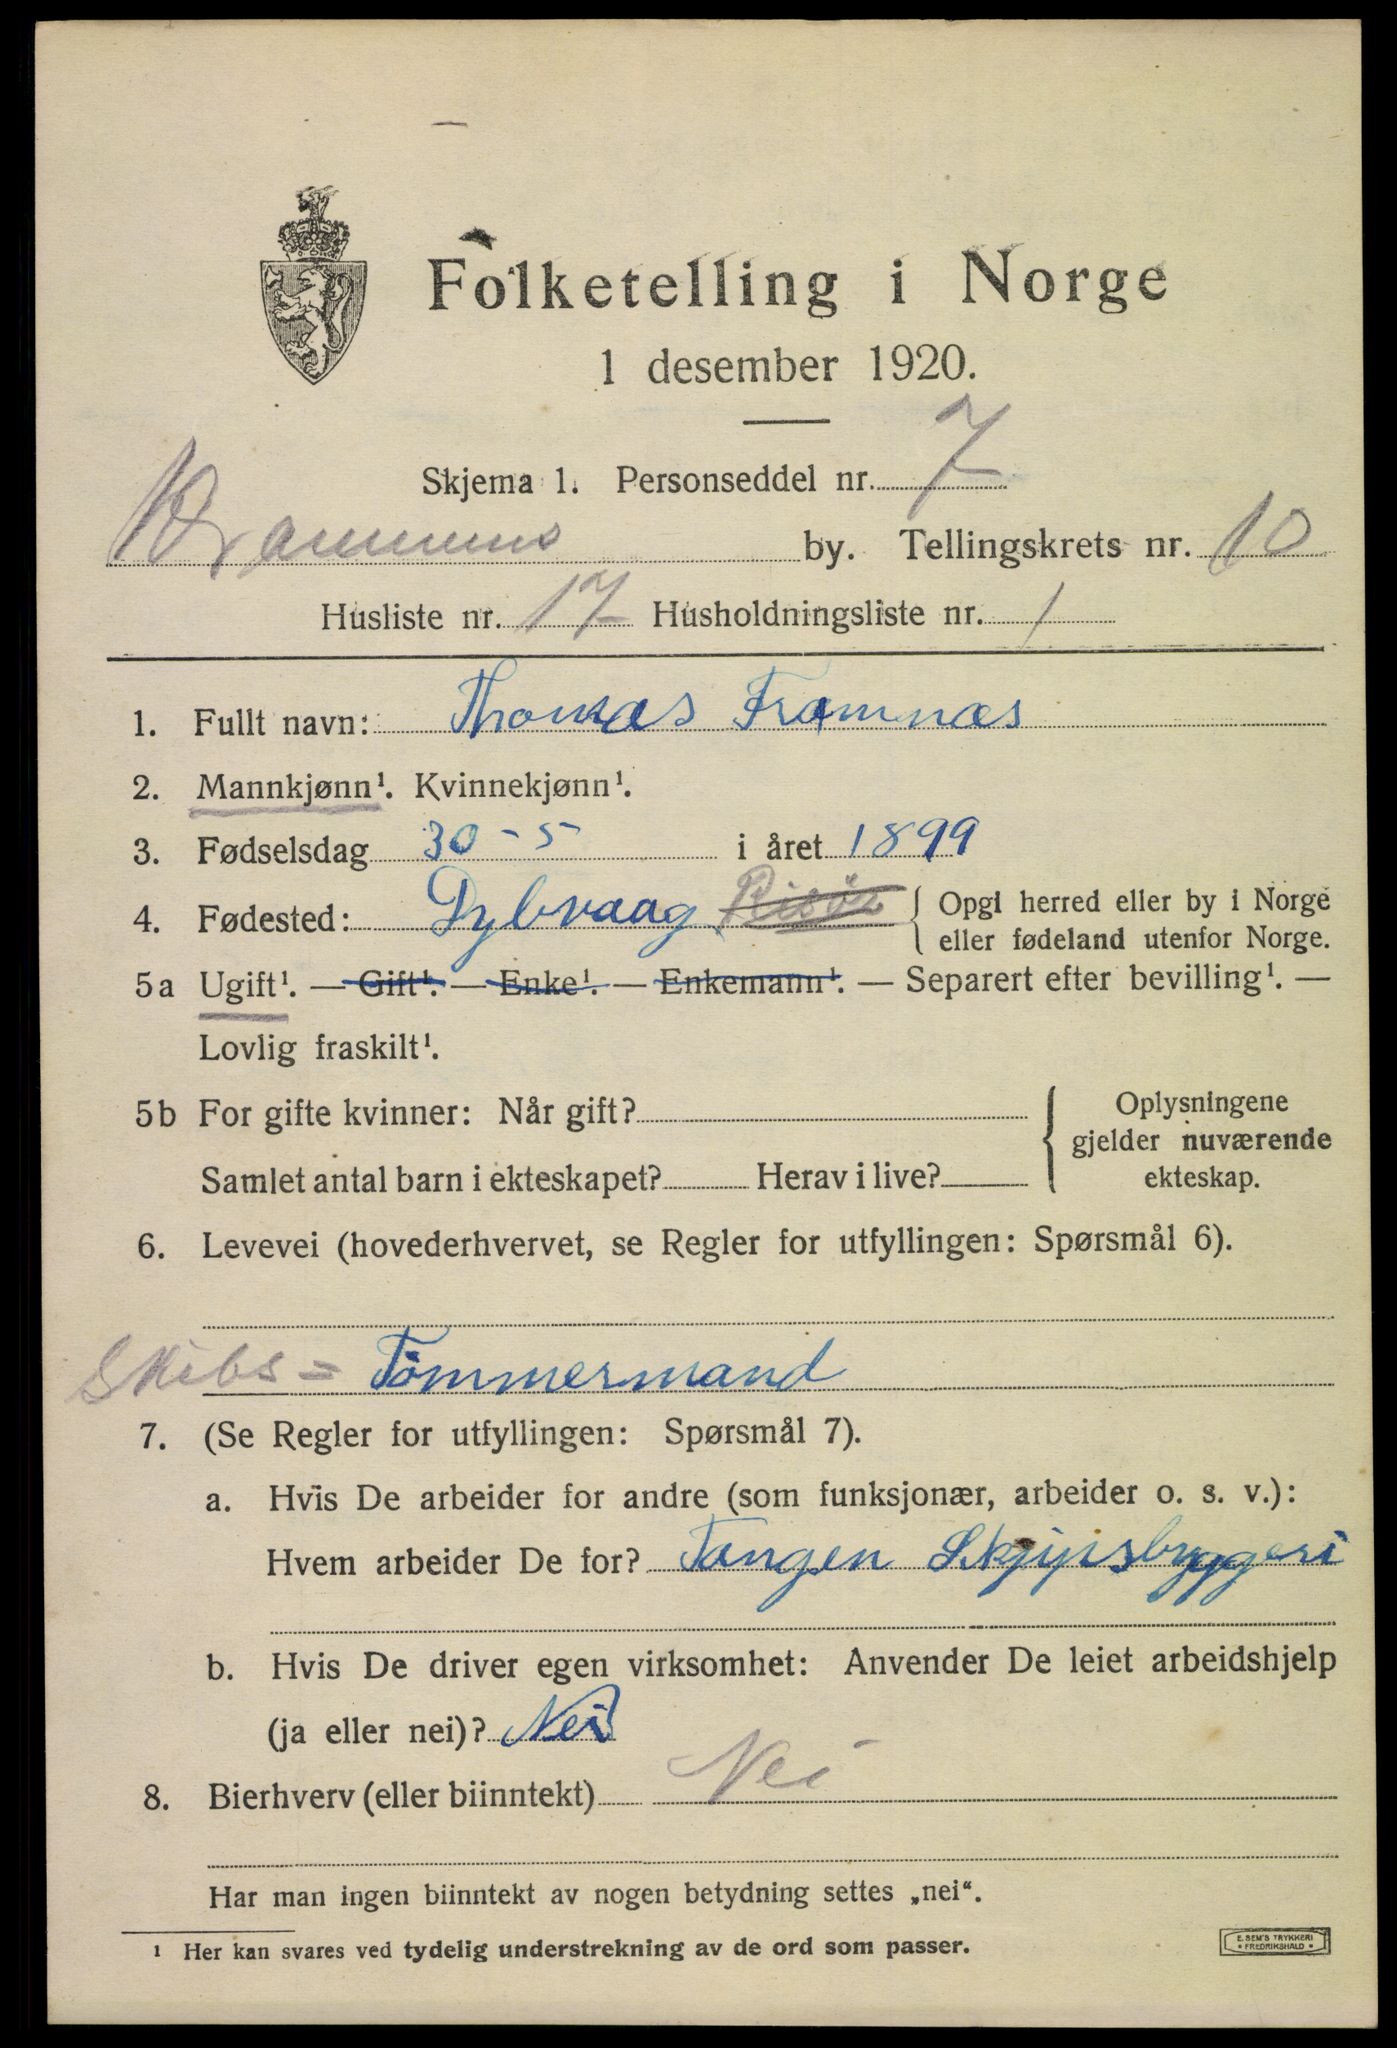 Folketelling i Norge
1 desember 1920.
Skjema 1. Personseddel nr. 7
by. Tellingskrets nr. 10
Husliste nr. 17 Husholdningsliste nr. 1
1. Fullt navn: Thomas Framnæs
2. Mannkjønn¹. Kvinnekjønn¹.
3. Fødselsdag 30-5 i året 1899
4. Fødested: Dybvaag Risör { Opgi herred eller by i Norge
eller fødeland utenfor Norge.
5a Ugift¹. — Gift¹. — Enke¹. — Enkemann¹. — Separert efter bevilling¹. —
Lovlig fraskilt¹.
5b For gifte kvinner: Når gift? { Oplysningene
gjelder nuværende
Samlet antal barn i ekteskapet? Herav i live? ekteskap.
6. Levevei (hovederhvervet, se Regler for utfyllingen: Spørsmål 6).
Skibs = Tömmermand
7. (Se Regler for utfyllingen: Spørsmål 7).
a. Hvis De arbeider for andre (som funksjonær, arbeider o. s. v.):
Hvem arbeider De for? Tangen Skjipsbyggeri
b. Hvis De driver egen virksomhet: Anvender De leiet arbeidshjelp
(ja eller nei)? Nei
8. Bierhverv (eller biinntekt) Nei
Har man ingen biinntekt av nogen betydning settes „nei“.
¹ Her kan svares ved tydelig understrekning av de ord som passer.
E. SEM'S TRYKKERI
• FREDRIKSHALD •